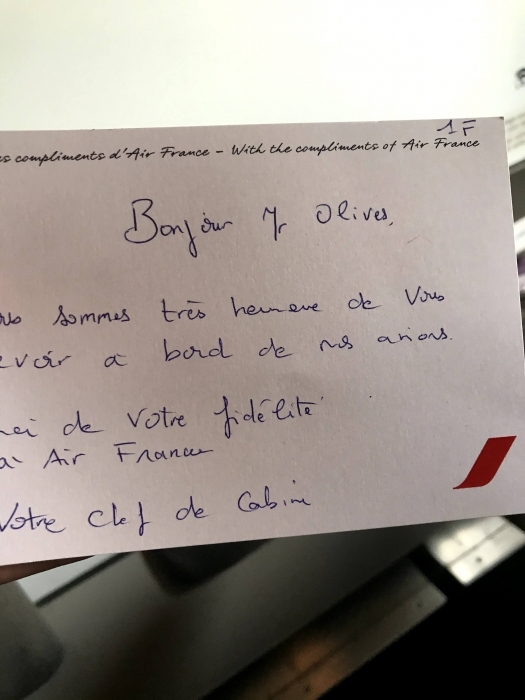 1F
s compliments d'Air France - With the compliments of Air France
Bonjour Mr Olives,
us sommes très heureux de Vous
evoir a bord de nos avions.
ci de Votre fidélité
à Air France
Votre Chef de Cabine